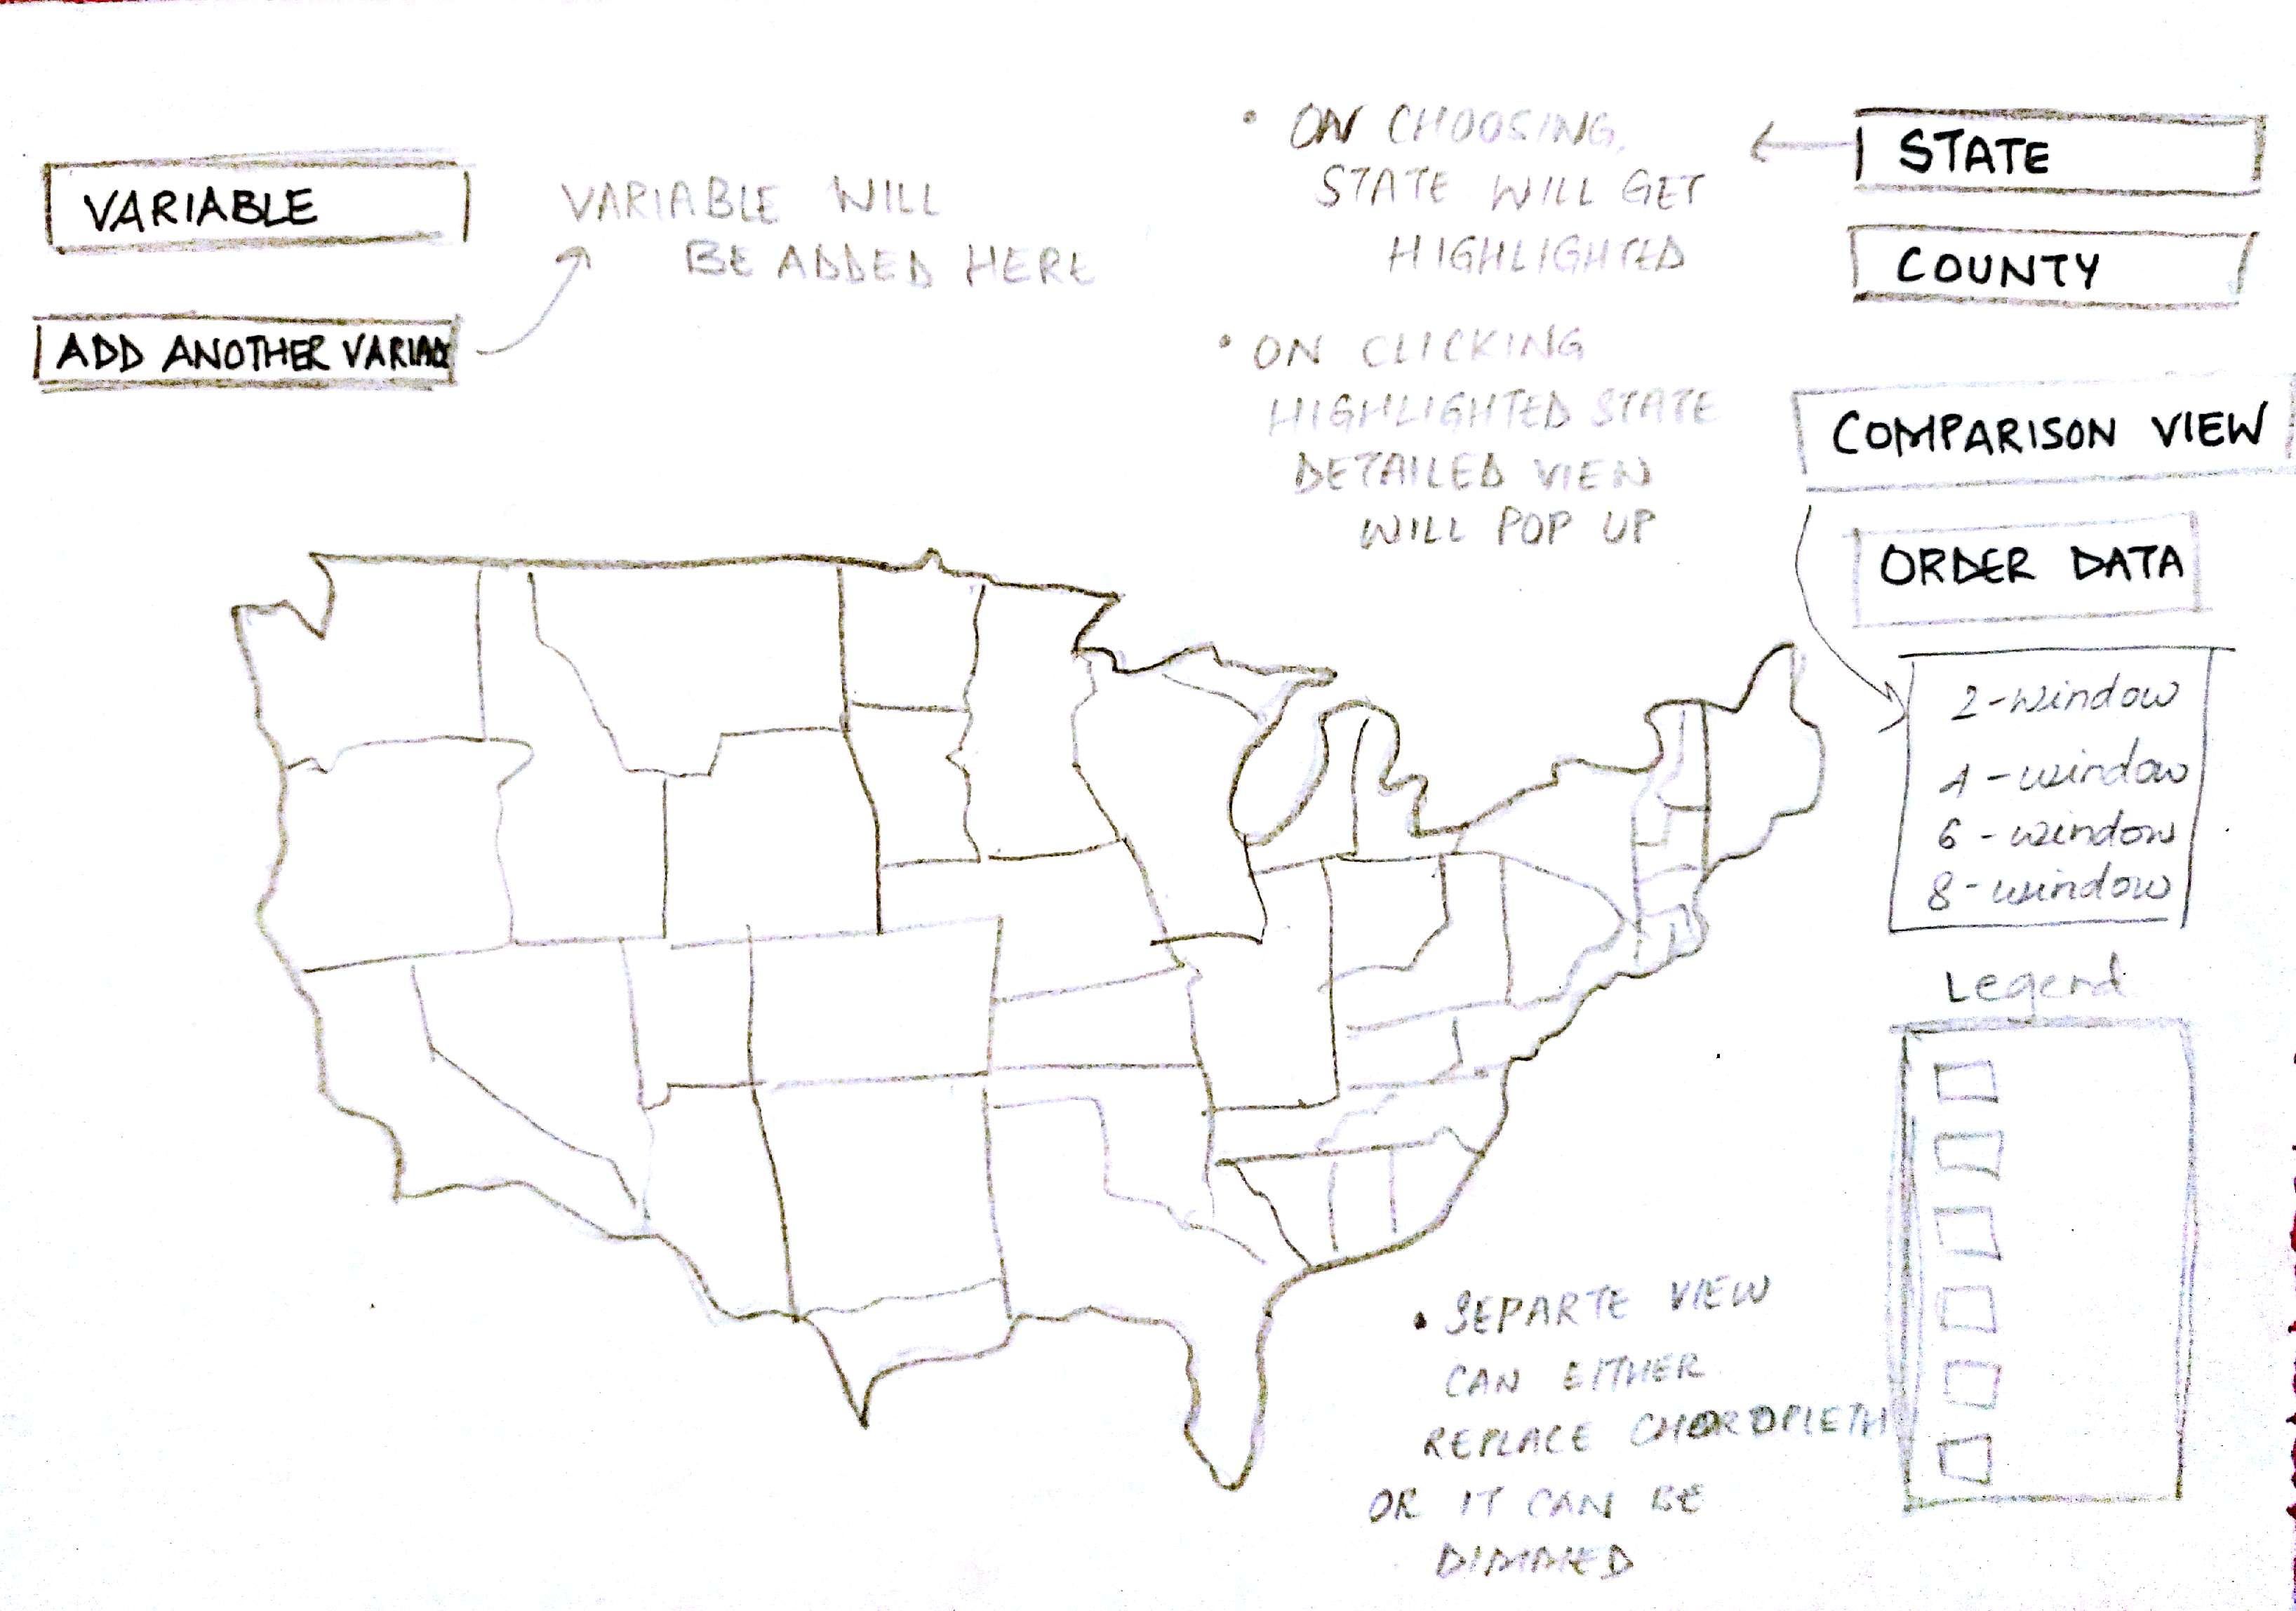 VARIABLE
ADD ANOTHER VARIABLE
VARIABLE WILL
BE ADDED HERE
• ON CHOOSING,
STATE WILL GET
HIGHLIGHTED
• ON CLICKING
HIGHLIGHTED STATE
DETAILED VIEW
WILL POP UP
STATE
COUNTY
COMPARISON VIEW
ORDER DATA
2-window
4-window
6-window
8-window
Legend
• SEPARTE VIEW
CAN EITHER
REPLACE CHOROPLETH
OR IT CAN BE
DIMMED